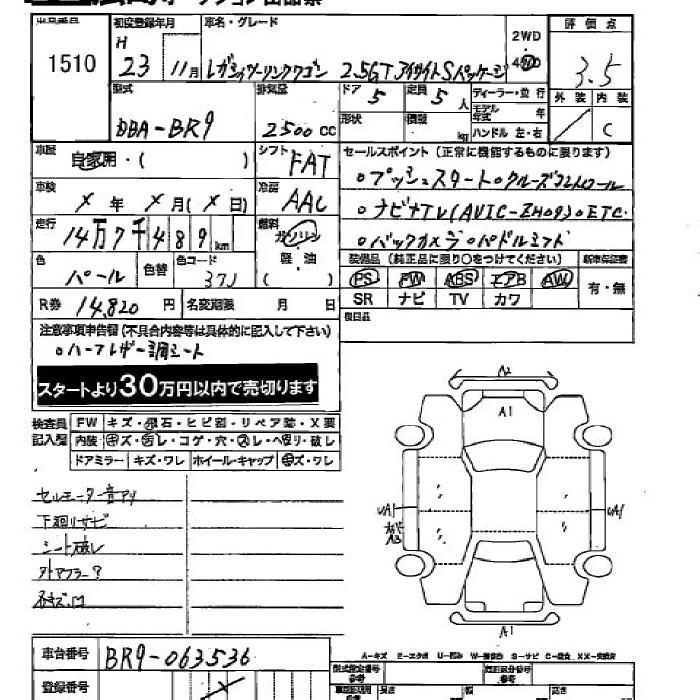 出品番号 初度登録年月 車名・グレード 評価点
1510
H 23 11月 レガシィツーリングワゴン 2.5GT アイサイトSパッケージ
2WD
4WD
3.5
型式 排気量 ドア 定員 ディーラー・並行 外装 内装
DBA-BR9 2500 CC 5 5人 モデル年式 年
形状 積載 kg ハンドル 左・右 C
車歴 自家用・( ) シフト FAT
セールスポイント (正常に機能するものに限ります)
車検 X年 X月(X日) 冷房 AAC
○プッシュスタート○クルーズコントロール
○ナビナTV(AVIC-ZH09)○ETC
○バックカメラ○パドルシフト
走行 14万7千489km 燃料 ガソリン
軽・油
( )
色 パール 色替 色コード 37J
装備品 (純正品に限り○をつけてください) 新車保証書
PS PW ABS エアB AW 有・無
SR ナビ TV カワ
R券 14,820円 名変期限 月 日
後日品
注意事項申告欄 (不具合内容等は具体的に記入して下さい)
○ハーフレザー調シート
スタートより30万円以内で売切ります
検査員記入欄
FW キズ・飛石・ヒビ割・リペア跡・X要
内装 キズ・汚レ・コゲ・穴・スレ・ヘタリ・破レ
ドアミラー キズ・ワレ ホイール・キャップ キズ・ワレ
セルモーター音アリ
下廻リサビ
シート破レ
外マフラー?
A2
A1
UA1
UA1
A3
A1
A-キズ E-エクボ U-凹み S-サビ C-腐食
車台番号 BR9-063536
型式指定番号 類別区分番号
登録番号 長さ 幅 高さ